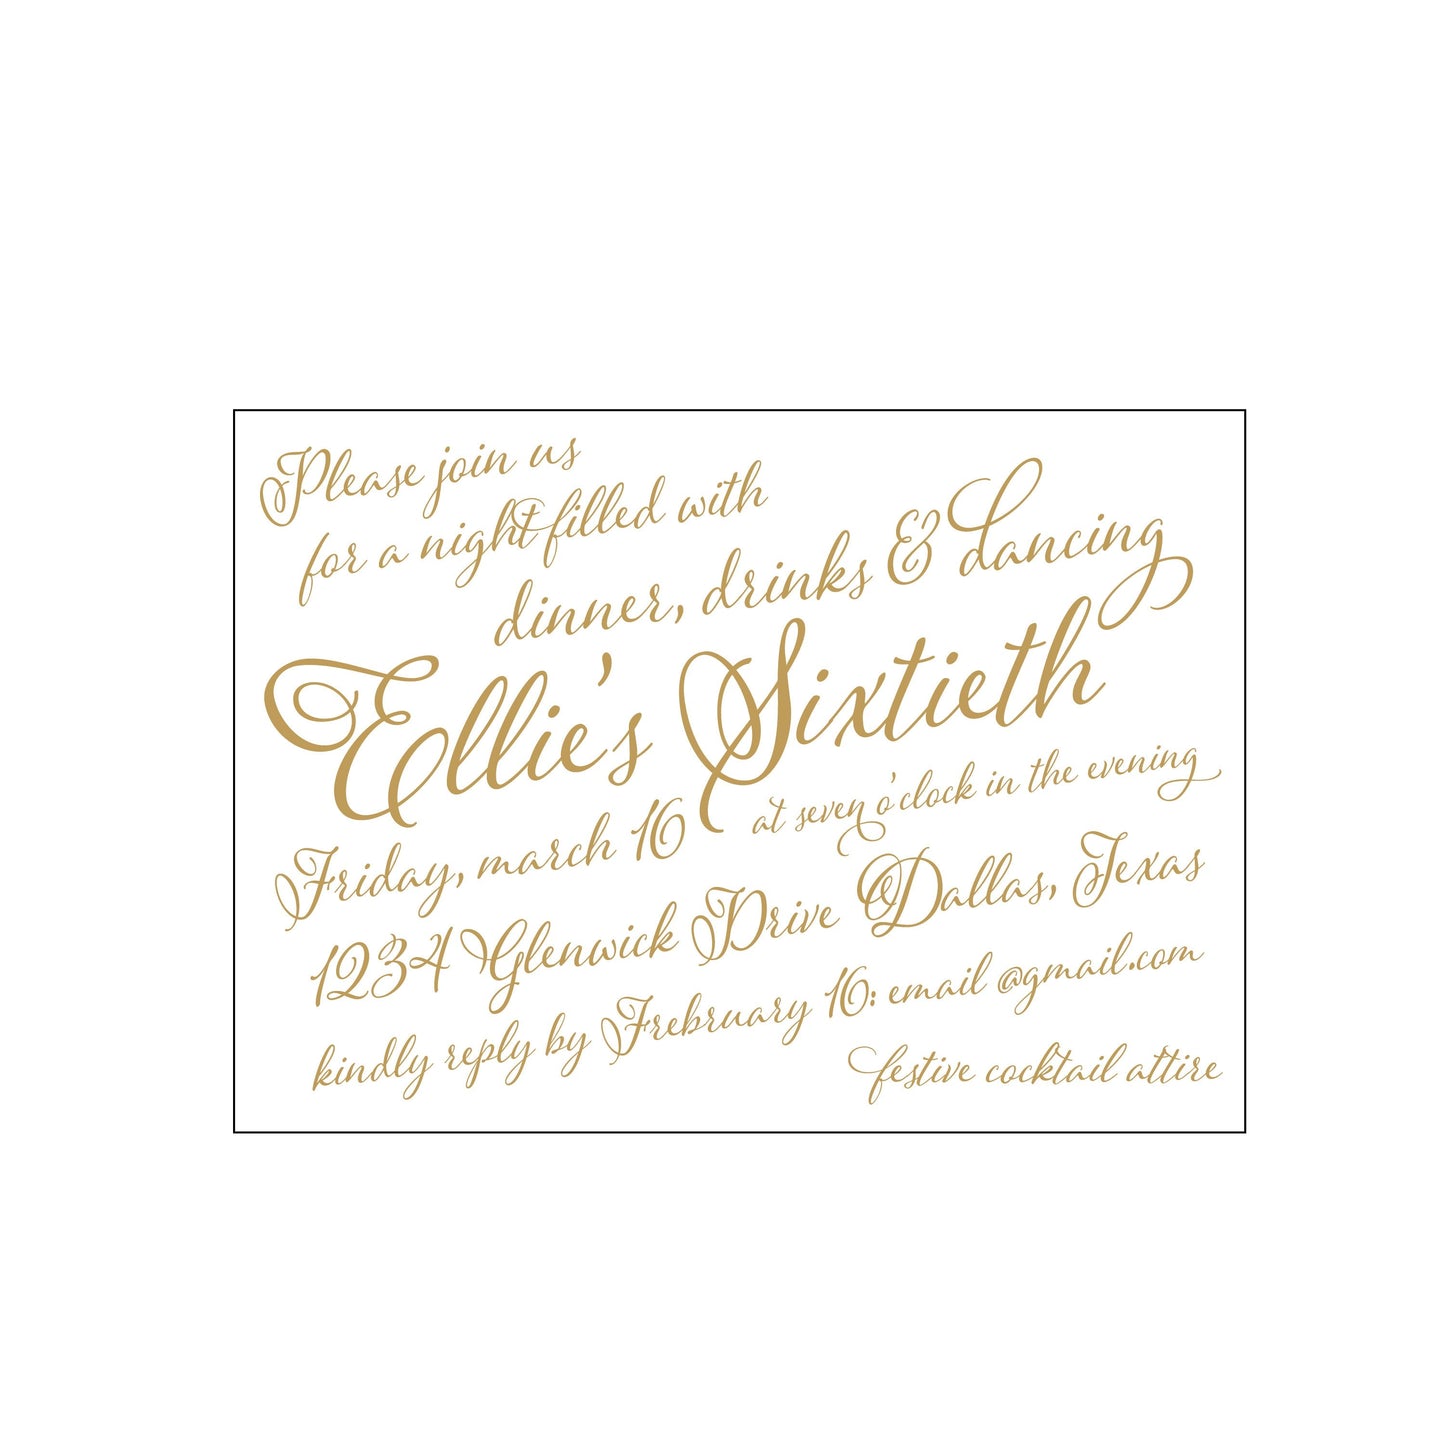 Please join us
for a night filled with
dinner, drinks & dancing
Ellie's Sixtieth
Friday, march 16 at seven o'clock in the evening
1234 Glenwick Drive Dallas, Texas
kindly reply by Frebruary 16: email @gmail.com
festive cocktail attire